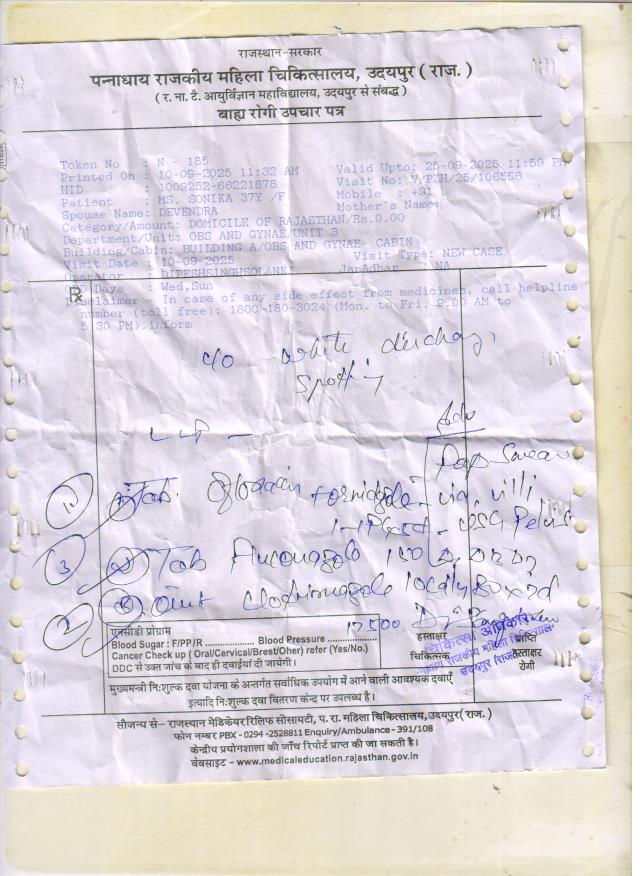 राजस्थान-सरकार
पन्नाधाय राजकीय महिला चिकित्सालय, उदयपुर ( राज. )
( र. ना. टै. आयुर्विज्ञान महाविद्यालय, उदयपुर से संबद्ध )
बाह्य रोगी उपचार पत्र
Token No : N - 185
Printed On : 10-09-2025 11:32 AM Valid Upto: 25-09-2025 11:59 PM
HID : 1009252-66221878 Visit No: V/PZH/25/106556
Patient : MS. SONIKA 37Y /F Mobile : +91
Spouse Name: DEVENDRA Mother's Name:
Category/Amount: DOMICILE OF RAJASTHAN/Rs.0.00
Department/Unit: OBS AND GYNAE/UNIT 3
Building/Cabin: BUILDING A/OBS AND GYNAE- CABIN
Visit Date : 10-09-2025 Visit Type: NEW CASE
Operator : DIPESHSINGHSOLANKI JanAdhar : NA
Days : Wed,Sun
Disclaimer : In case of any side effect from medicines, call helpline
number (toll free): 1800-180-3024 (Mon. to Fri. 9.00 AM to
5.30 PM).inform
Rx
c/o - white discharge
spotting
Adv
LMP -
Pap Smear
1 Tab.
USG Pelvis
3 Tab 150
2 Oint locally
एनसीडी प्रोग्राम
Blood Sugar : F/PP/R .................. Blood Pressure ..................
Cancer Check up ( Oral/Cervical/Brest/Oher) refer (Yes/No.)
DDC से उक्त जांच के बाद ही दवाईयां दी जायेगी।
हस्ताक्षर प्राप्ति
चिकित्सक हस्ताक्षर
रोगी
चिकित्सा अधिकारी
राजकीय महिला चिकित्सालय
उदयपुर (राज.)
मुख्यमन्त्री निःशुल्क दवा योजना के अन्तर्गत सर्वाधिक उपयोग में आने वाली आवश्यक दवाएँ
इत्यादि निःशुल्क दवा वितरण केन्द्र पर उपलब्ध है।
सौजन्य से– राजस्थान मेडिकेयर रिलिफ सोसायटी, प. रा. महिला चिकित्सालय, उदयपुर ( राज. )
फोन नम्बर PBX - 0294 -2528811 Enquiry/Ambulance - 391/108
केन्द्रीय प्रयोगशाला की जाँच रिपोर्ट प्राप्त की जा सकती है।
वेबसाइट - www.medicaleducation.rajasthan.gov.in